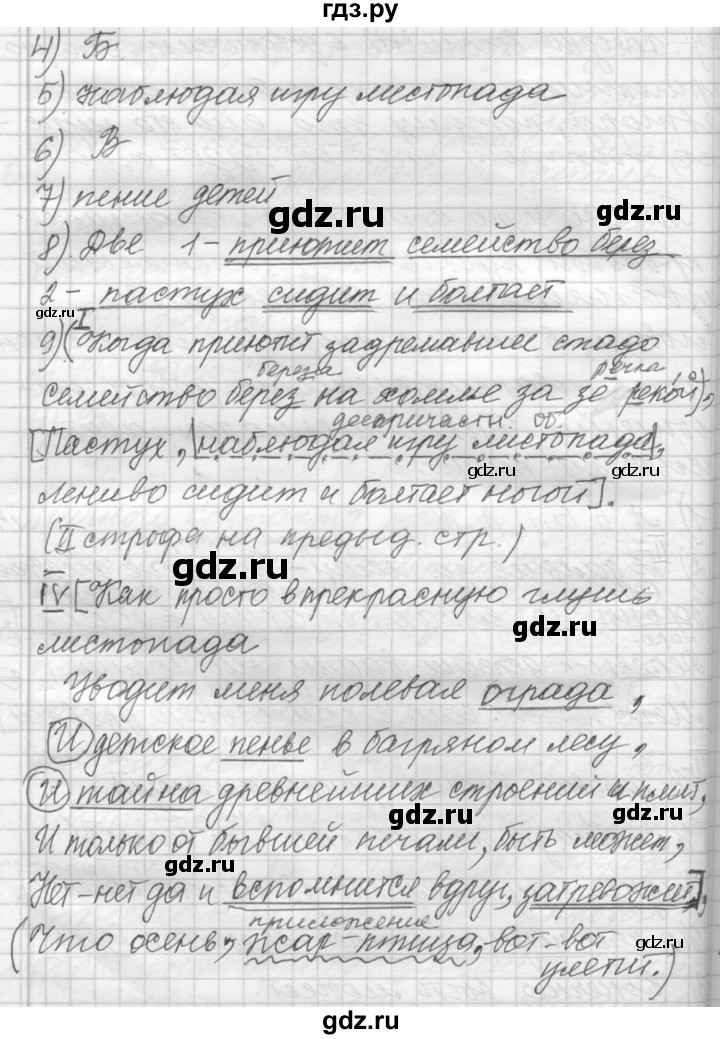 гдз.ру
4) Б
5) наблюдая игру листопада
6) В
7) пение детей
gdz.ru
gdz.ru
8) Две 1- приютит семейство берез
2- пастух сидит и болтает
gdz.ru
gdz.ru
I
9) (Когда приютит задремавшее стадо
береза речка
семейство берез на холме за зе рекой),
деепричастн. об.
[Пастух, |наблюдая игру листопада|,
gdz.ru
gdz.ru
лениво сидит и болтает ногой].
(II строфа на предыд. стр.)
gdz.ru
gdz.ru
IV [Как просто в прекрасную глушь
листопада
gdz.ru
Уводит меня полевая ограда,
gdz.ru
И детское пенье в багряном лесу,
И тайна древнейших строений и плит,
gdz.ru
И только от бывшей печали, быть может,
gdz.ru
Нет-нет да и вспомнится вдруг, затревожит],
приложение
(Что осень, жар-птица, вот-вот
gdz.ru
улетит.)
gdz.ru
gdz.ru